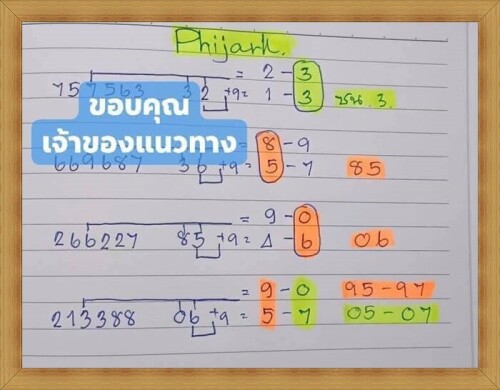 Phijarh.
= 2 - 3
757563 32 +9= 1 - 3 ชน 3
ขอบคุณ
เจ้าของแนวทาง
= 8 - 9
669687 36 +9= 5 - 7 85
= 9 - 0
266227 85 +9= 4 - 6 06
= 9 - 0 95 - 97
213388 06 +9= 5 - 7 05 - 07